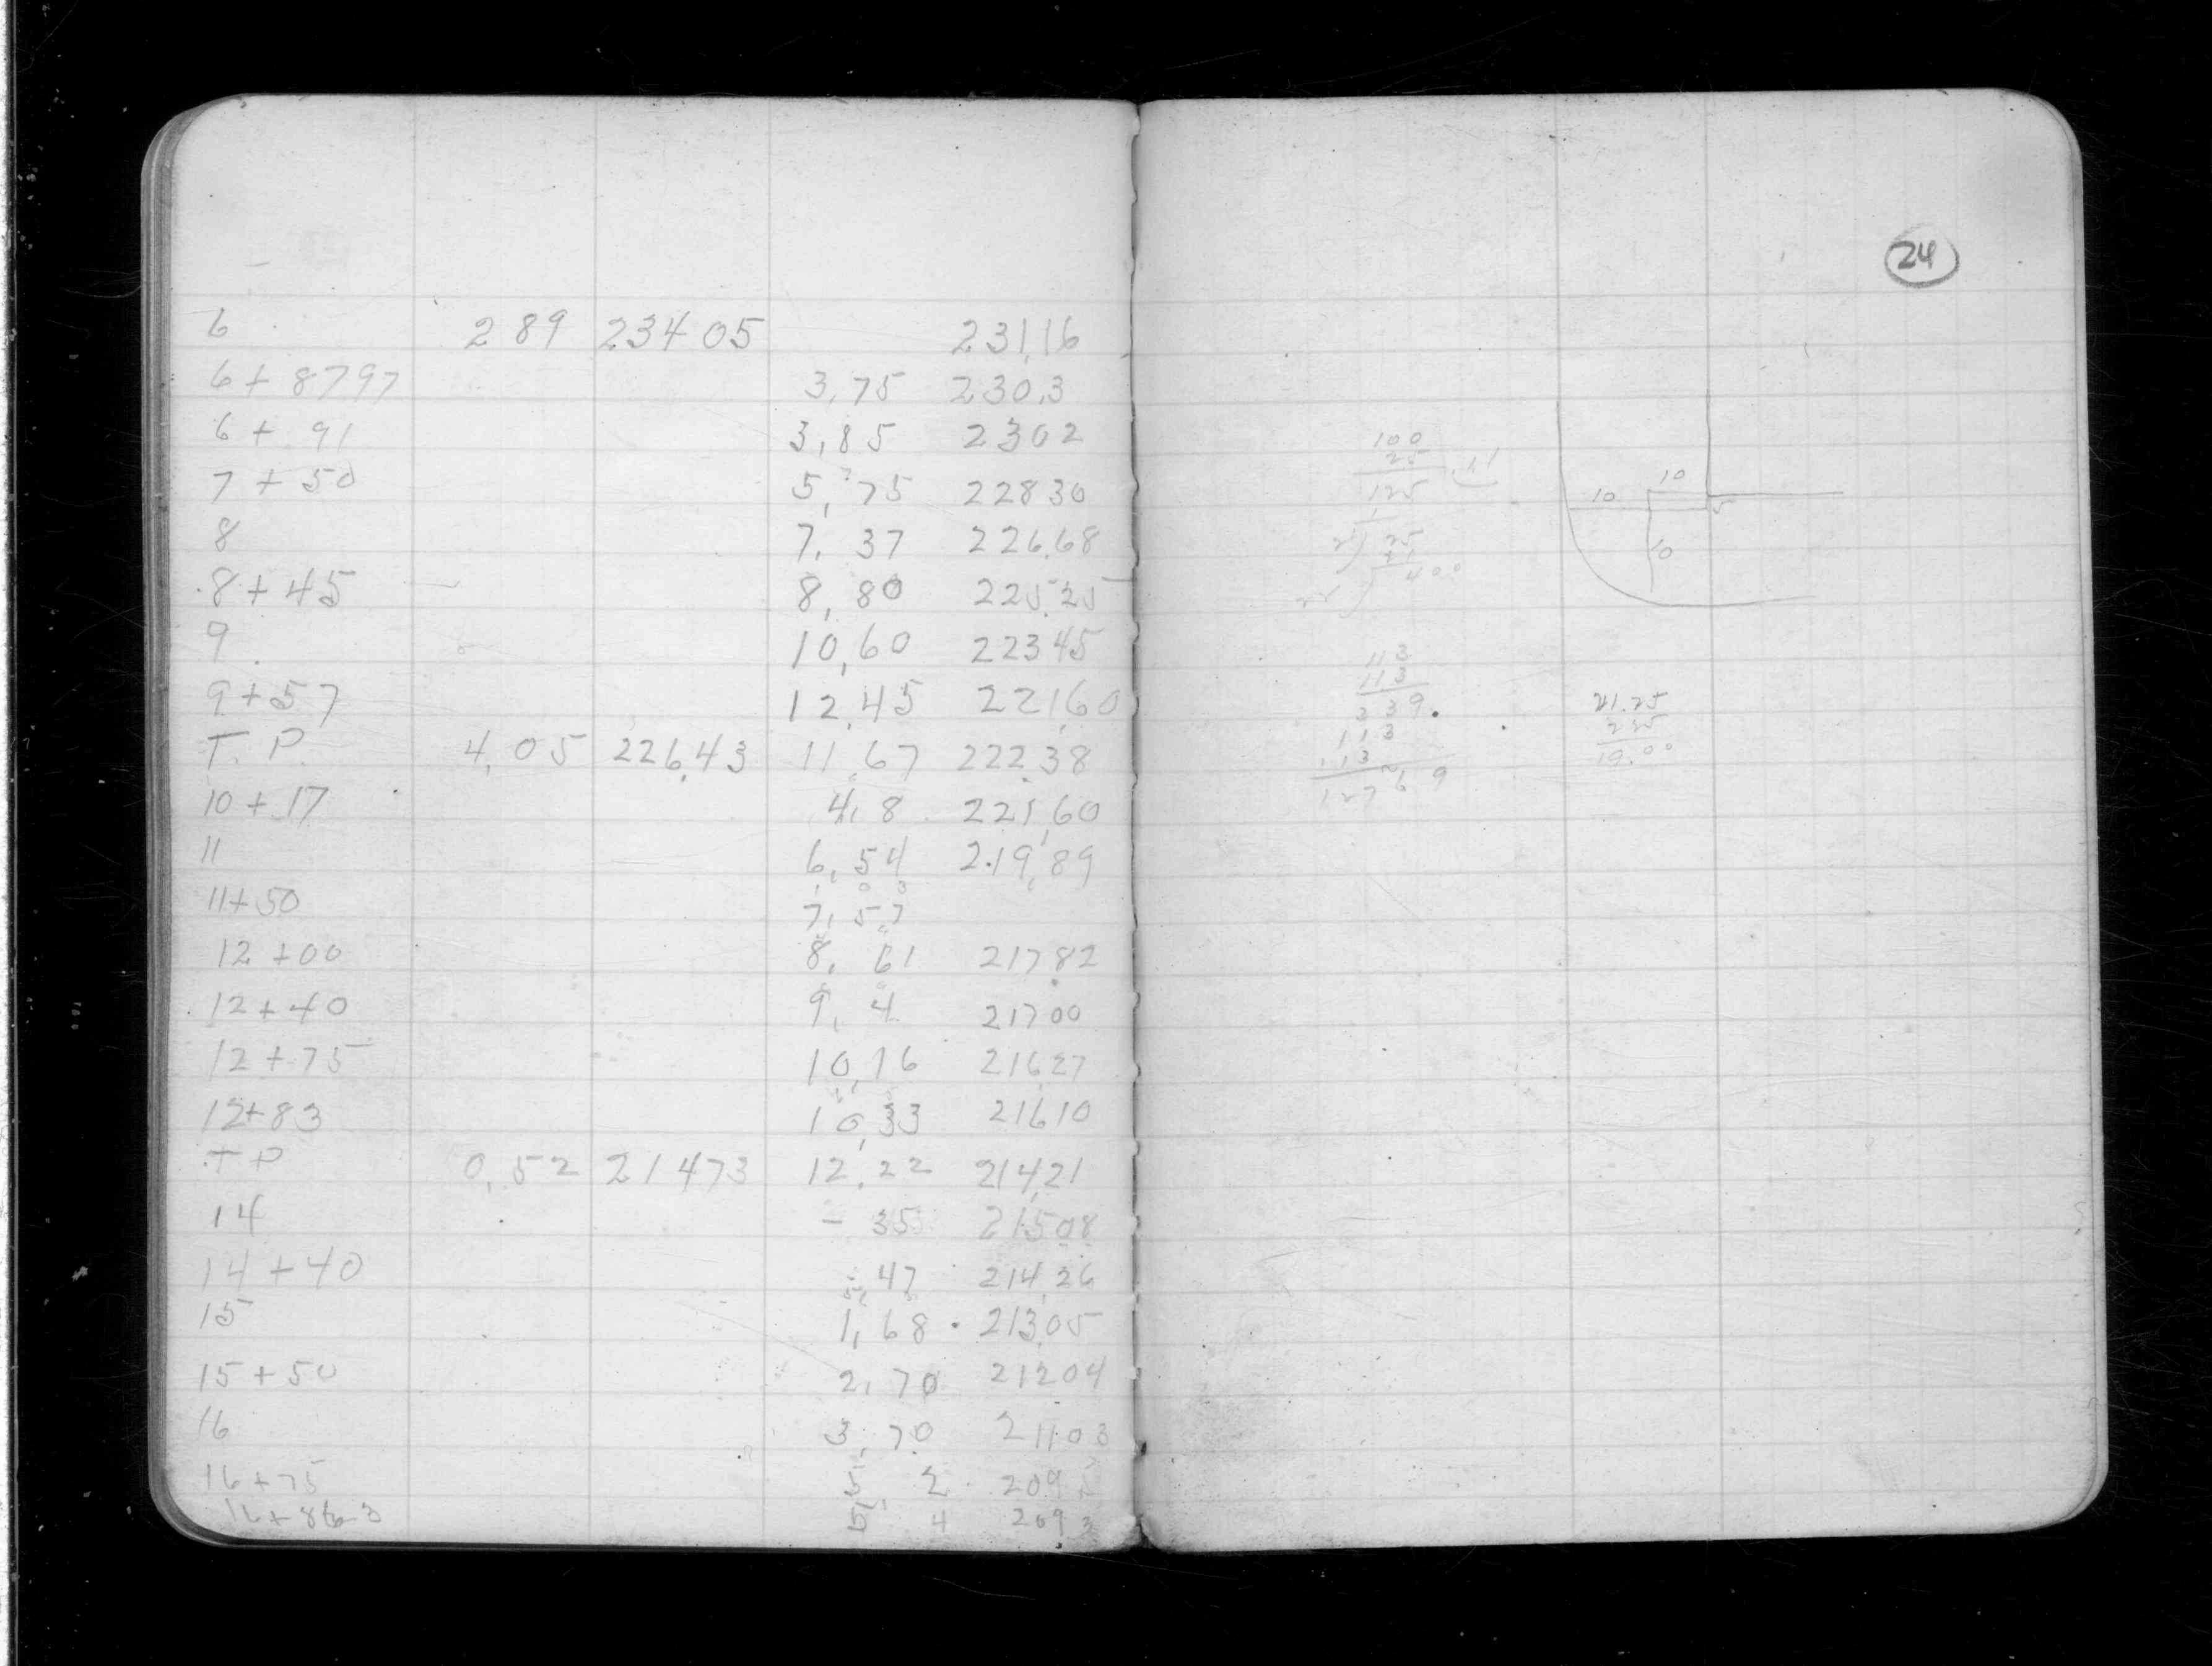 6 2 89 234 05 231,16
6 + 8797 3,75 230,3
6 + 91 3,85 2302
7 + 50 5,75 22830
8 7,37 226.68
8 + 45 8,80 225.25
9 10,60 22345
9 + 57 12,45 221,60
T. P. 4,05 226,43 11,67 222.38
10 + 17 4,8 221,60
11 6,54 219,89
11+50 7,57
12 +00 8,61 217.82
12 + 40 9,4 21700
12 + 75 10,16 216.27
12+83 10,33 21610
T P 0,52 21473 12,22 214,21
14 - 35 21508
14 + 40 ,47 214,26
15 1,68 213.05
15 + 50 2,70 21204
16 3,70 21103
16 + 75 2 209
4 209 3
24
100
25
125
10
10
5
10
400
113
113
339
113
113
12769
21.25
225
19.00